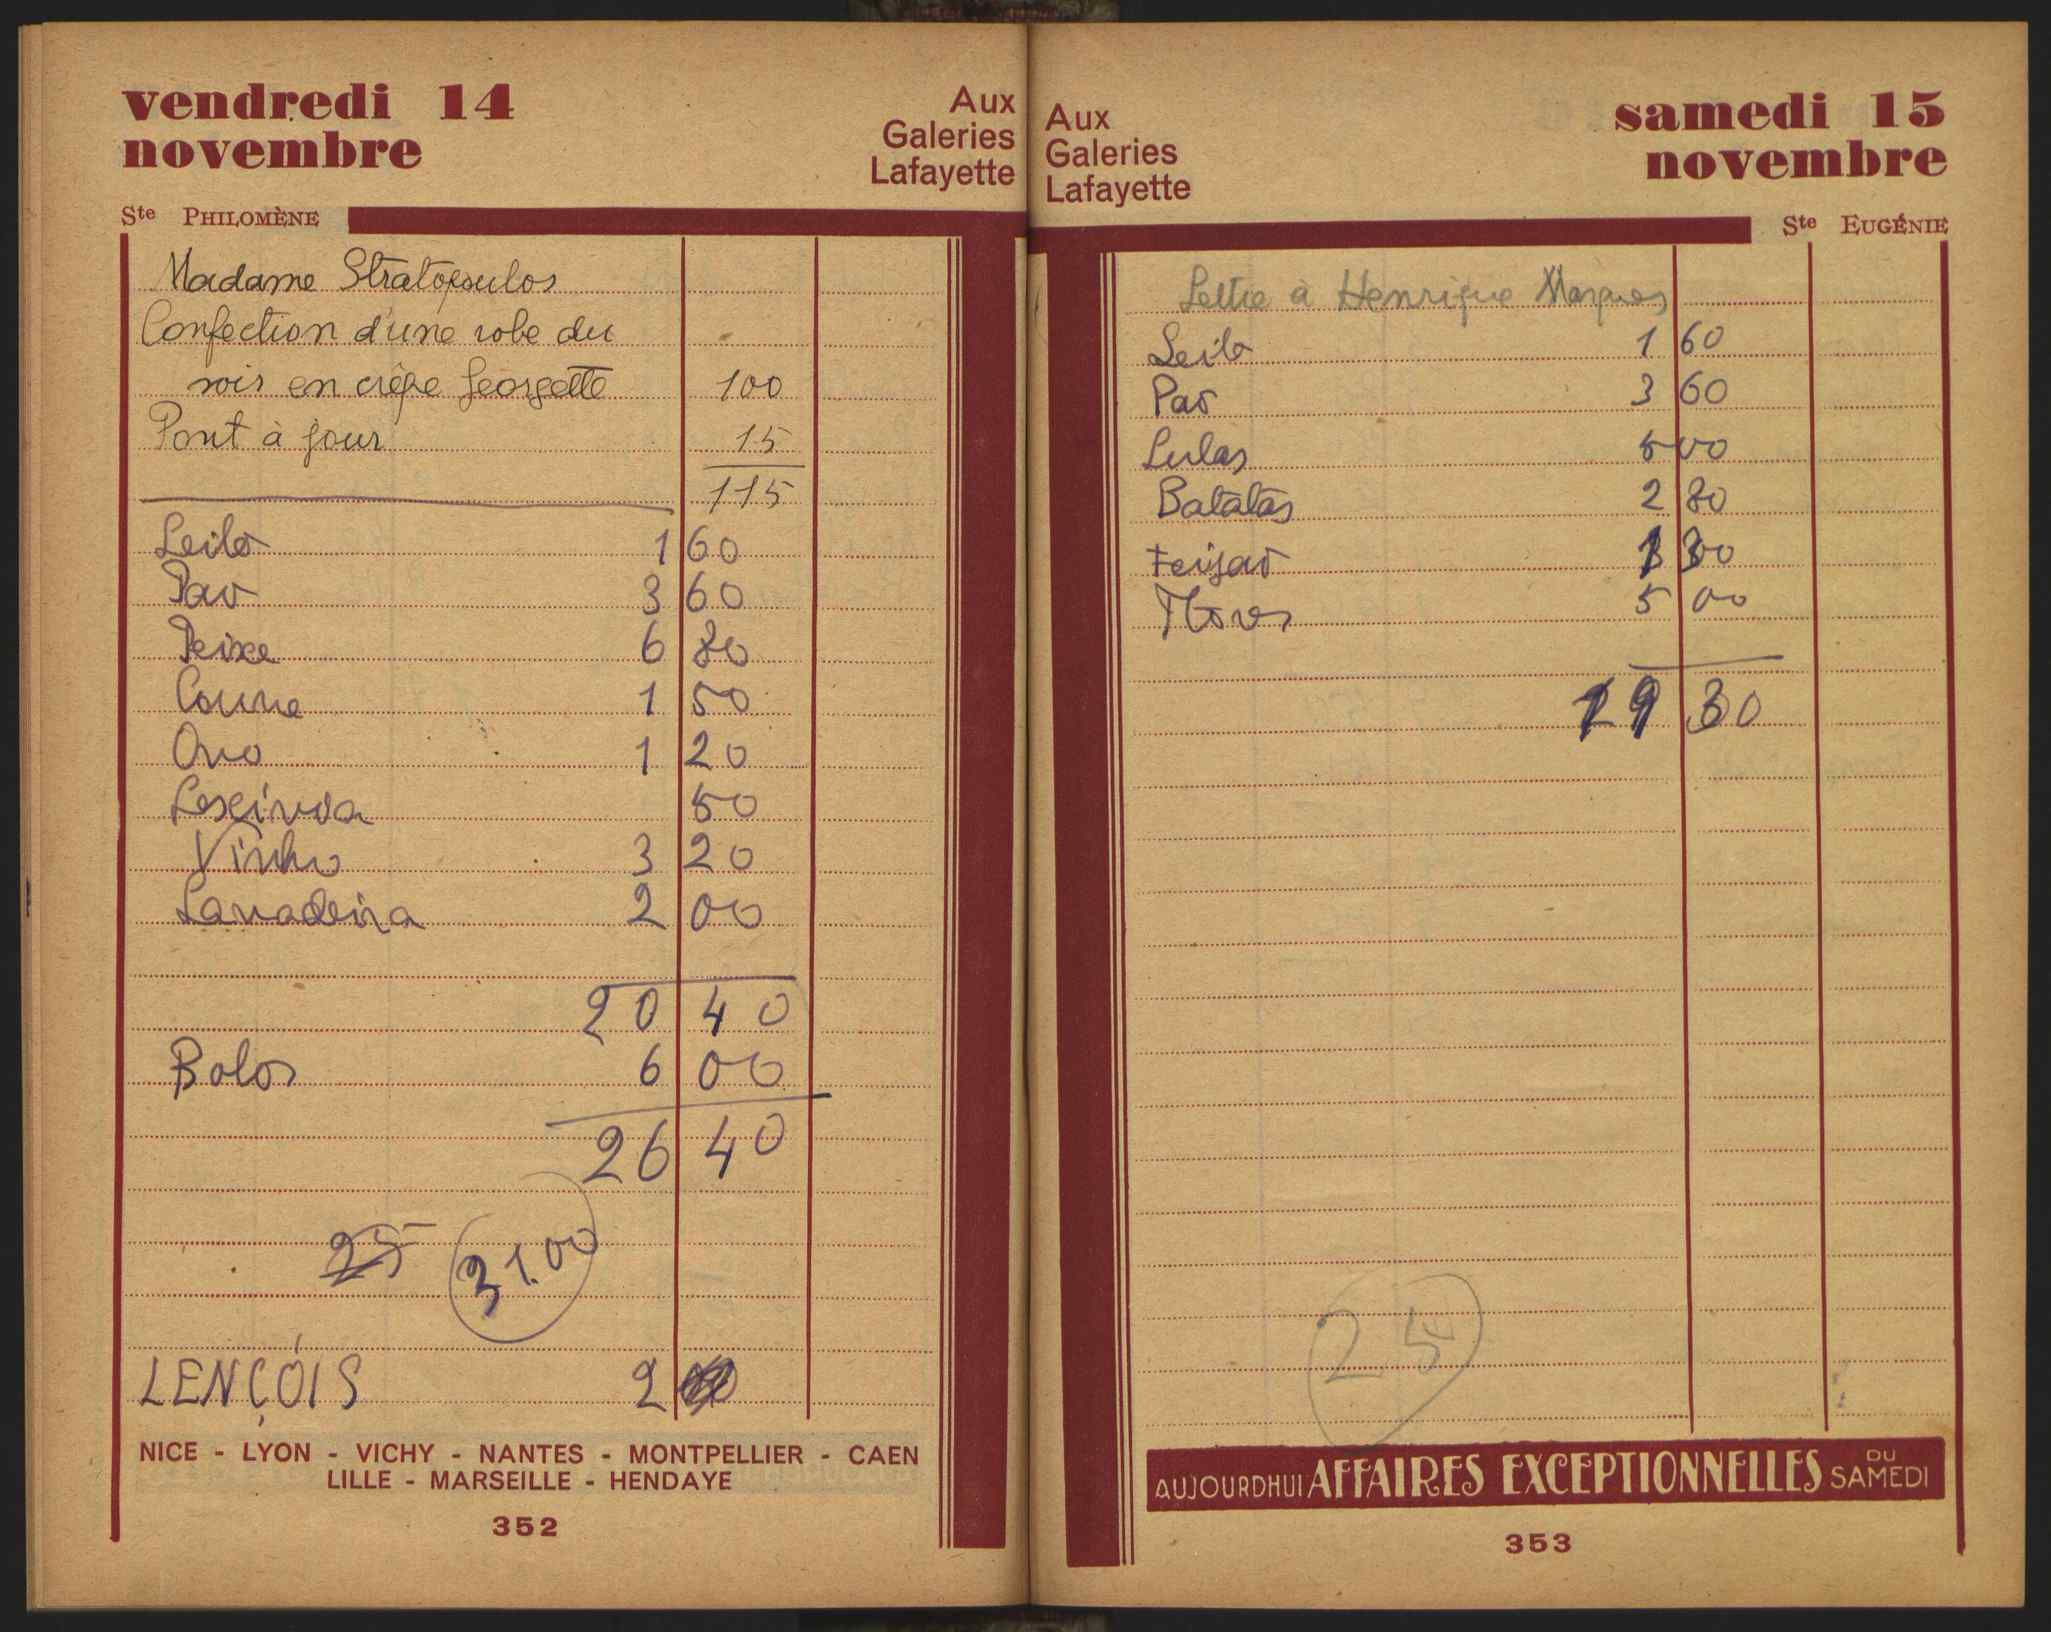 vendredi 14
novembre
Aux
Galeries
Lafayette
Ste PHILOMÈNE
Madame Stratopoulos
Confection d'une robe du
soir en crêpe georgette 100
Pont à jour 15
115
Leite 1 60
Pao 3 60
Peixe 6 80
Couve 1 50
Ovo 1 20
Lexivia 50
Vinho 3 20
Lavadeira 2 00
20 40
Bolos 6 00
26 40
25
31.00
LENÇÓIS 2
NICE - LYON - VICHY - NANTES - MONTPELLIER - CAEN
LILLE - MARSEILLE - HENDAYE
352
Aux
Galeries
Lafayette
samedi 15
novembre
Ste EUGÉNIE
Lettre à Henrique Marques
Leite 1 60
Pao 3 60
Lulas 5 00
Batatas 2 80
Feijao 1 30
5 00
19 30
25
AUJOURDHUI AFFAIRES EXCEPTIONNELLES DU SAMEDI
353